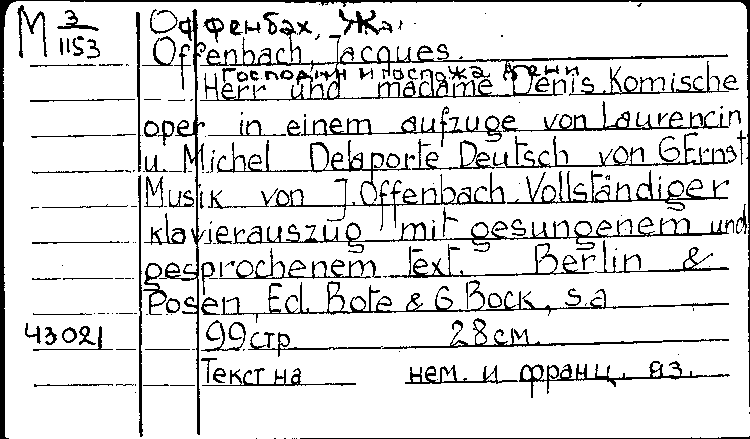 М 3/1153 Оффенбах, Жак
Offenbach, Jacques.
Господин и госпожа Дени
Herr und madame Denis Komische
oper in einem aufzuge von Laurencin
u. Michel Delaporte Deutsch von G Ernst
Musik von J. Offenbach. Vollständiger
klavierauszug mit gesungenem und
gesprochenem text. Berlin &
Posen, Ed. Bote & G. Bock, s.a
43021 99стр 28см.
Текст на нем. и франц. яз.